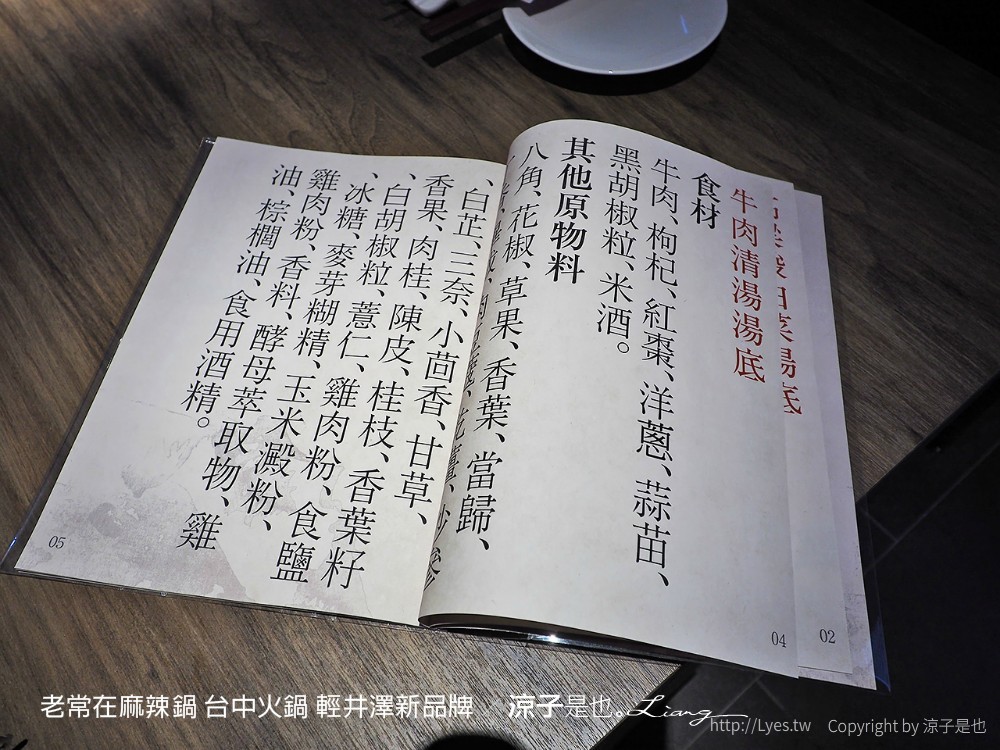 牛肉清湯湯底
食材
牛肉、枸杞、紅棗、洋蔥、蒜苗、
黑胡椒粒、米酒。
其他原物料
八角、花椒、草果、香葉、當歸、
、白芷、三奈、小茴香、甘草、
香果、肉桂、陳皮、桂枝、香葉籽
、白胡椒粒、薏仁、雞肉粉、食鹽
、冰糖、麥芽糊精、玉米澱粉、
雞肉粉、香料、酵母萃取物、雞
油、棕櫚油、食用酒精。
05
04
02
老常在麻辣鍋 台中火鍋 輕井澤新品牌
涼子是也。Liang
http://Lyes.tw Copyright by 涼子是也